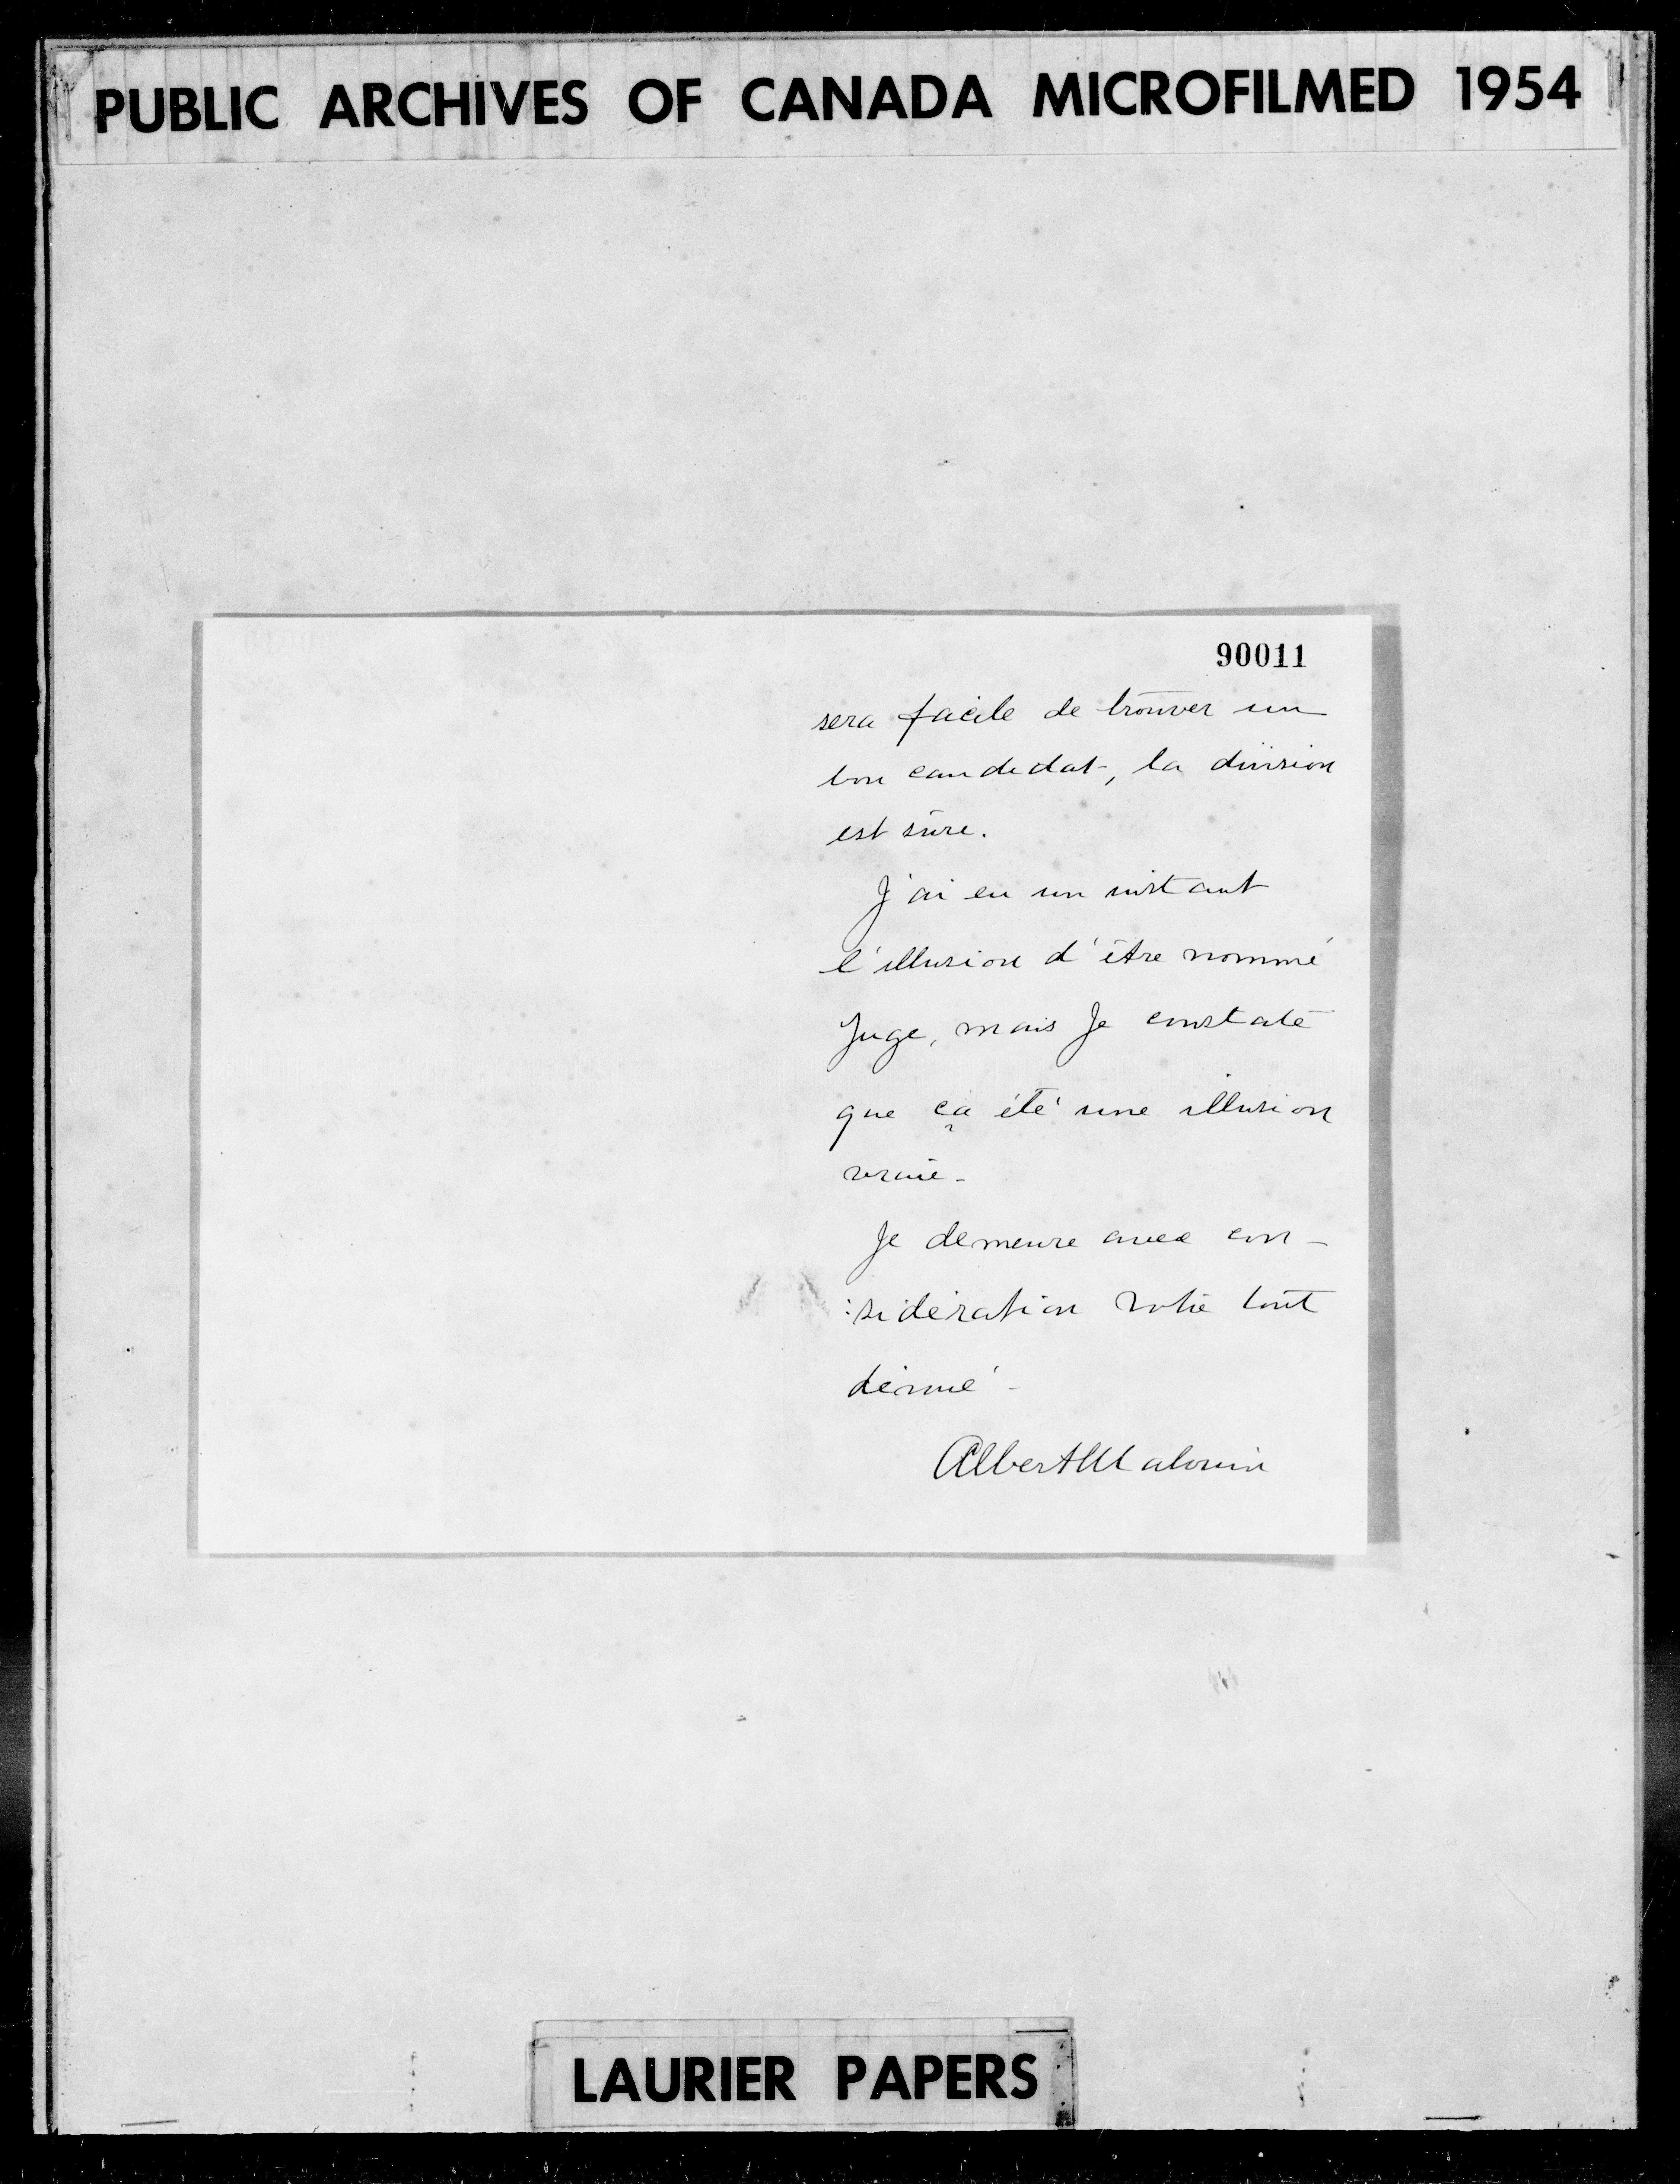 PUBLIC ARCHIVES OF CANADA MICROFILMED 1954
90011
sera facile de trouver un
bon candidat, la division
est sûre.
J'ai eu un instant
l'illusion d'être nommé
Juge, mais je constate
que ça été une illusion
vraie -
Je demeure avec con-
:sidération votre tout
dévoué -
Albert Malouin
LAURIER PAPERS